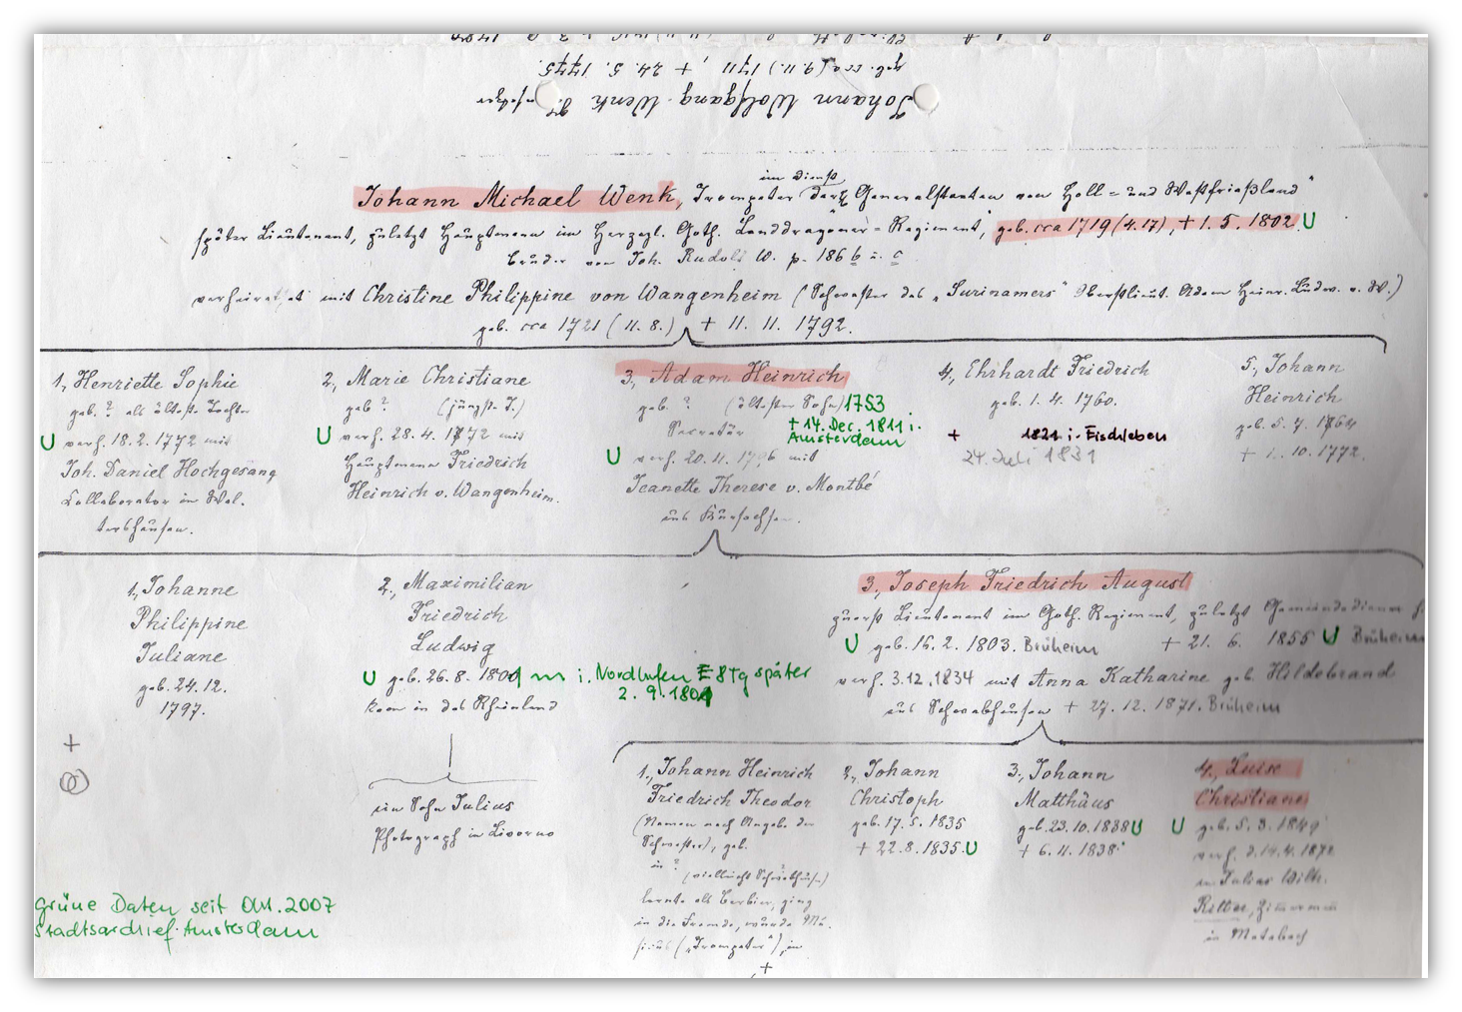 Johann Wolfgang Wenk
geb. cca (9.11.) 1711, + 24. 5. 1775.
Johann Michael Wenk, Trompeter im Dienst der „Generalstaaten von Holl= und Westfrießland"
später Lieutenant, zuletzt Hauptmann im Herzogl. Goth. Landdragoner=Regiment, geb. cca 1719 (4.17), + 1. 5. 1802. U
Bruder von Joh. Rudolf W. p. 186 b u. c
verheiratet mit Christine Philippine von Wangenheim (Schwester des „Surinamers" Oberstlieut. Adam Heinr. Ludw. v. W.)
geb. cca 1721 (11. 8.) + 11. 11. 1792.
1., Henriette Sophie
geb. ? als älteste Tochter
U verh. 18. 2. 1772 mit
Joh. Daniel Hochgesang
Collaborator in Wal-
tershausen.
2., Marie Christiane
geb ? (jüngste T.)
U verh. 28. 4. 1772 mit
Hauptmann Friedrich
Heinrich v. Wangenheim.
3., Adam Heinrich
geb. ? (ältester Sohn) 1753
Secretär + 14. Dec. 1811 i.
Amsterdam
U verh. 20. 11. 1796 mit
Jeanette Therese v. Montbé
aus Kursachsen.
4., Ehrhardt Friedrich
geb. 1. 4. 1760.
+ 1821 i. Eischleben
24. Juli 1831
5., Johann
Heinrich
geb. 5. 7. 1764
+ 1. 10. 1772.
1., Johanne
Philippine
Juliane
geb. 24. 12.
1797.
+
2., Maximilian
Friedrich
Ludwig
U geb. 26. 8. 1801 i. Nordhofen 8 Tg später
2. 9. 1801
kam in das Rheinland
ein Sohn Julius
Photograph in Livorno
3., Joseph Friedrich August
zuerst Lieutenant im Goth. Regiment, zuletzt Gemeindediener
U geb. 15. 2. 1803. Brüheim + 21. 6. 1855 U Brüheim
verh. 3.12.1834 mit Anna Katharine geb. Hildebrand
aus Schwabhausen + 27. 12. 1871. Brüheim
1., Johann Heinrich
Friedrich Theodor
(Namen nach Angabe der
Schwester), geb.
in ? (vielleicht Schwabhausen)
lernte als Barbier, ging
in die Fremde, wurde Mu-
sicus („Trompeter") in
+
2., Johann
Christoph
geb. 17. 5. 1835
+ 22. 8. 1835. U
3., Johann
Matthäus
geb. 23. 10. 1838 U
+ 6. 11. 1838.
4., Luise
Christiane
U geb. 5. 3. 1849
verh. d. 14. 4. 1872
m Julius Wilh.
Ritter, Zimmermann
in Metebach
Grüne Daten seit Okt. 2007
Stadtsarchief Amsterdam